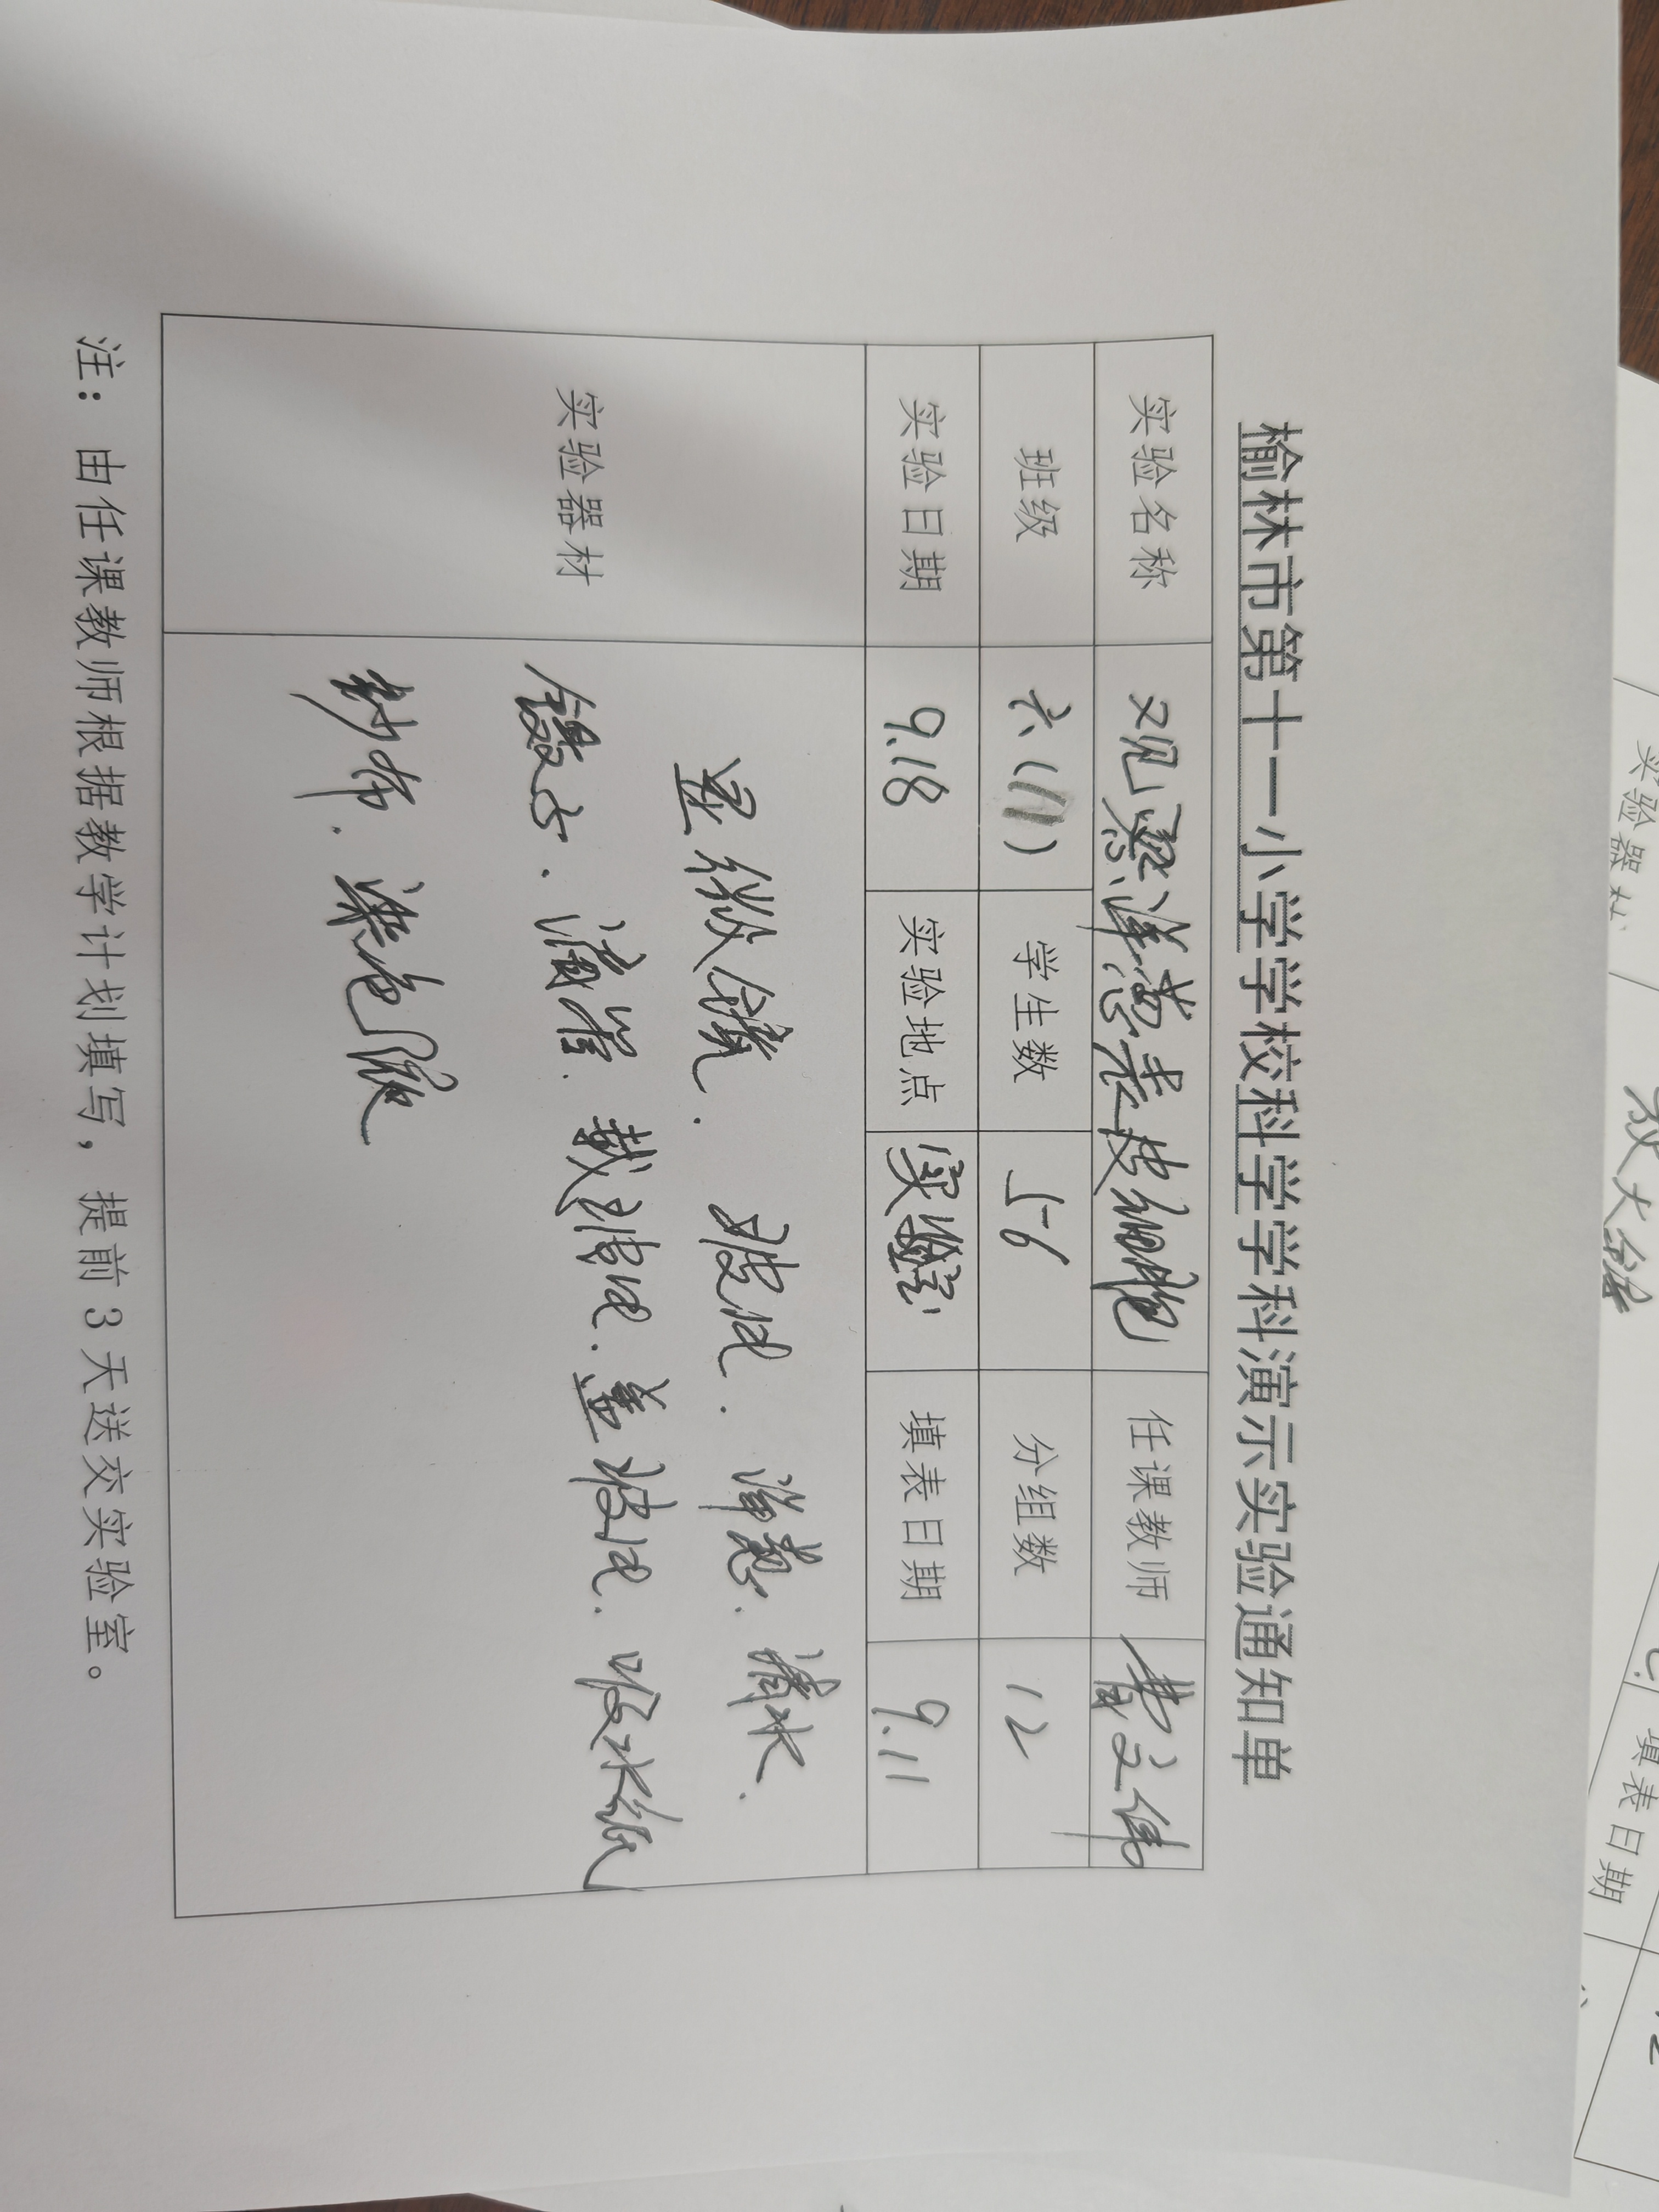 榆林市第十一小学学校科学学科演示实验通知单
实验名称 观察洋葱表皮细胞 任课教师 曹文伟
班级 六(11) 学生数 56 分组数 12
实验日期 9.18 实验地点 实验室 填表日期 9.11
实验器材
显微镜. 玻片. 洋葱. 清水.
镊子. 滴管. 载玻片. 盖玻片. 吸水纸
纱布. 染色液
注：由任课教师根据教学计划填写，提前3天送交实验室。
实验器材
放大镜
填表日期